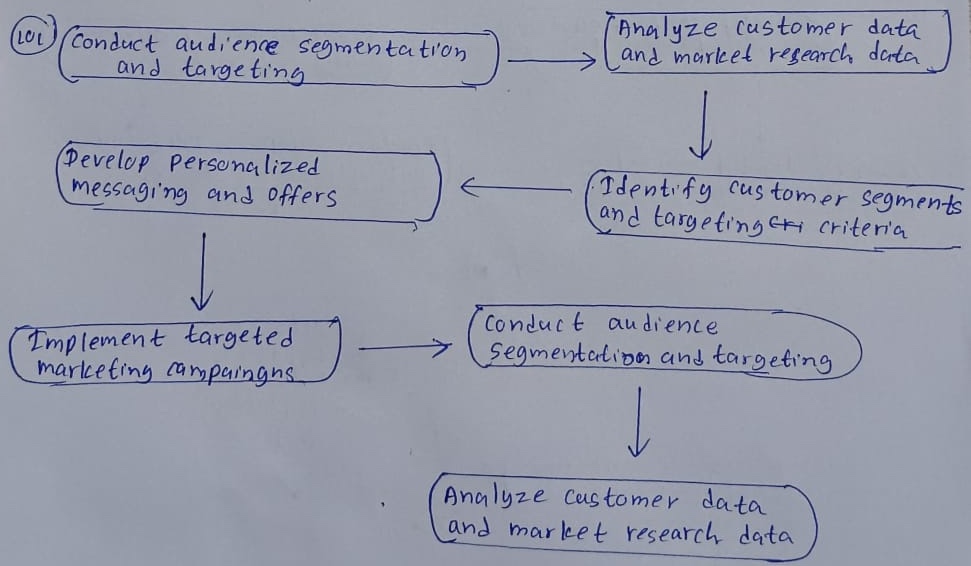 101
Conduct audience segmentation
and targeting
Analyze customer data
and market research data
Identify customer segments
and targeting cri criteria
Develop personalized
messaging and offers
Implement targeted
marketing campaingns
Conduct audience
segmentation and targeting
Analyze customer data
and market research data